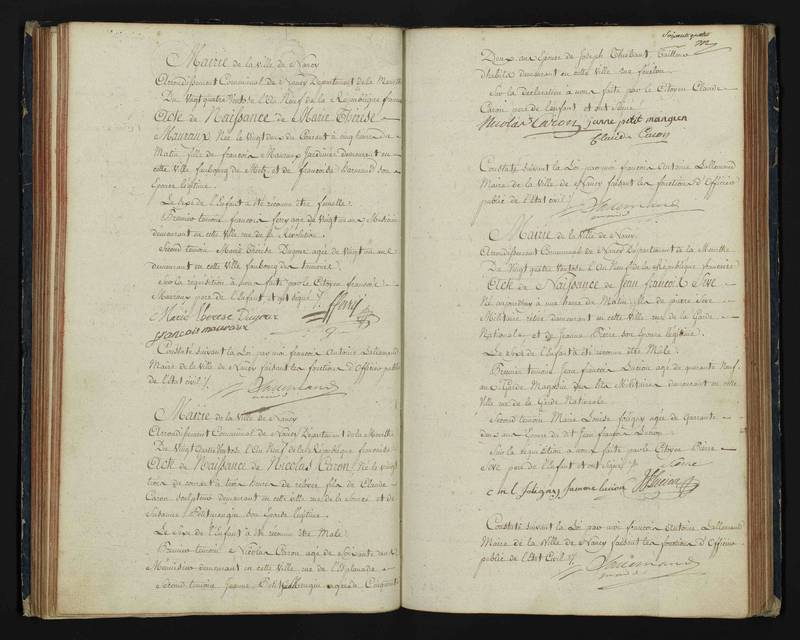 Mairie de la Ville de Nancy
Arrondissement Communal de Nancy Département de la Meurthe
Du Vingt quatre Ventose l'An Neuf de la République française
Acte de Naissance de Marie Thérèse
Mauraux Née le Vingt deux du Courant à cinq heures du
Matin fille de françois Mauraux Jardinier demeurant en
cette Ville faubourg de Metz, et de françoise Barnaud son
Epouse légitime.
Le Sexe de l'Enfant a été reconnu être femelle.
Premier temoin, francois ferry agé de Vingt un ans Musicien
demeurant en cette Ville rue de la Révolution.
Second temoin Marie Thérèse agée de Vingt un ans
demeurant en cette Ville faubourg des
Sur la requisition à nous faite par le Citoyen françois
Mauraux pere de l'Enfant et ont signé
Marie therese fferri
francois mauraux
Constaté suivant la Loi par moi françois Antoine Lallemand
Maire de la Ville de Nancy faisant les fonctions d'Officier public
de l'Etat civil
Lallemand
Mairie de la Ville de Nancy
Arrondissement Communal de Nancy Département de la Meurthe
Du Vingt quatre Ventose l'An Neuf de la République françoise
Acte de Naissance de Nicolas Caron Né le vingt
trois du courant à trois heures de relevée fils de Claude
Caron sculpteur demeurant en cette Ville rue de la Source et de
Suzanne Petitmangin son Epouse légitime.
Le Sexe de l'Enfant a été reconnu être Male.
Premier temoin Nicolas Caron agé de Soixante ans
Menuisier demeurant en cette Ville rue de l'Esplanade
Second temoin Jeanne Petitmangin agée de Cinquante
Soixante quatre
Deux ans Epouse de Joseph Thiebaut Tailleur
d'habits demeurant en cette Ville rue
Sur la Declaration à nous faite par le Citoyen Claude
Caron pere de l'enfant et ont Signé
Nicolas Caron janne petit mangien
Claude Caron
Constaté suivant la Loi par moi françois Antoine Lallemand
Maire de la Ville de Nancy faisant les fonctions d'Officier
public de l'Etat civil
Lallemand
Mairie de la Ville de Nancy
Arrondissement Communal de Nancy Département de la Meurthe
Du Vingt quatre Ventose l'An Neuf de la République francaise
Acte de Naissance de Jean françois Sève
Né aujourd'hui à une heure du Matin fils de pierre Sève
Militaire retiré demeurant en cette Ville rue de la Garde
Nationale, et de Jeanne son Epouse légitime.
Le Sexe de l'Enfant a été reconnu être Male.
Premier temoin Jean francois Lucion agé de quarante Neuf
ans Garde Magasin des lits Militaires demeurant en cette
Ville rue de la Garde Nationale.
Second temoin Marie Louise agée de Quarante
deux ans Epouse du dit Jean françois Lucion.
Sur la requisition à nous faite par le Citoyen Pierre
Sève pere de l'Enfant et ont Signé
femme lucion
Constaté suivant la Loi par moi françois Antoine Lallemand
Maire de la Ville de Nancy faisant les fonctions d'Officier
public de l'Etat Civil
Lallemand